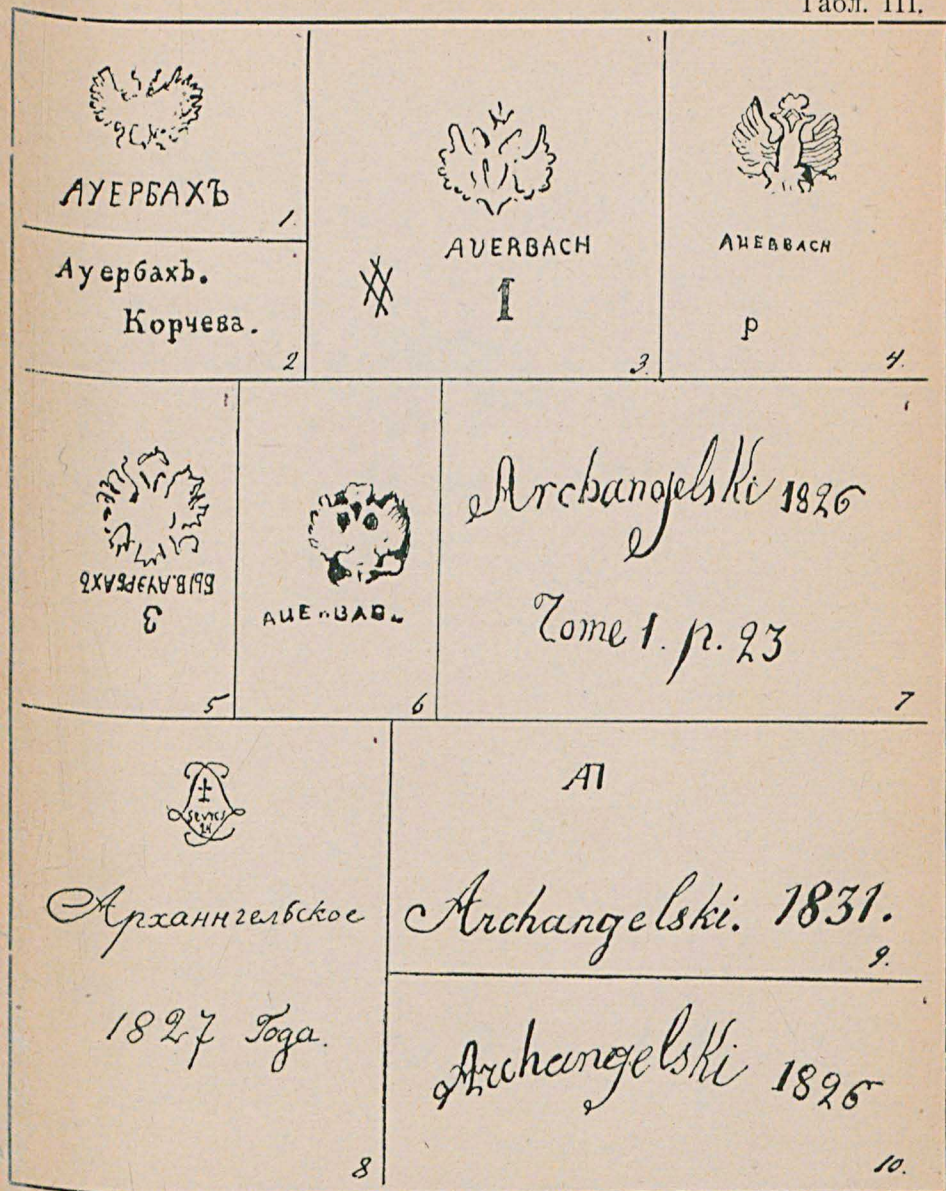 Табл. III.
АУЕРБАХЪ
1.
Ауербахъ.
Корчева.
2
AUERBACH
I
3.
AUERBACH
P
4.
БЫВ.АУЕРБАХЪ
3
5
6
Archangelski 1826
Tome 1. p. 23
7
SEVRES
24
Арханнгельское
1827 Года.
8
АП
Archangelski. 1831.
9.
Archangelski 1826
10.